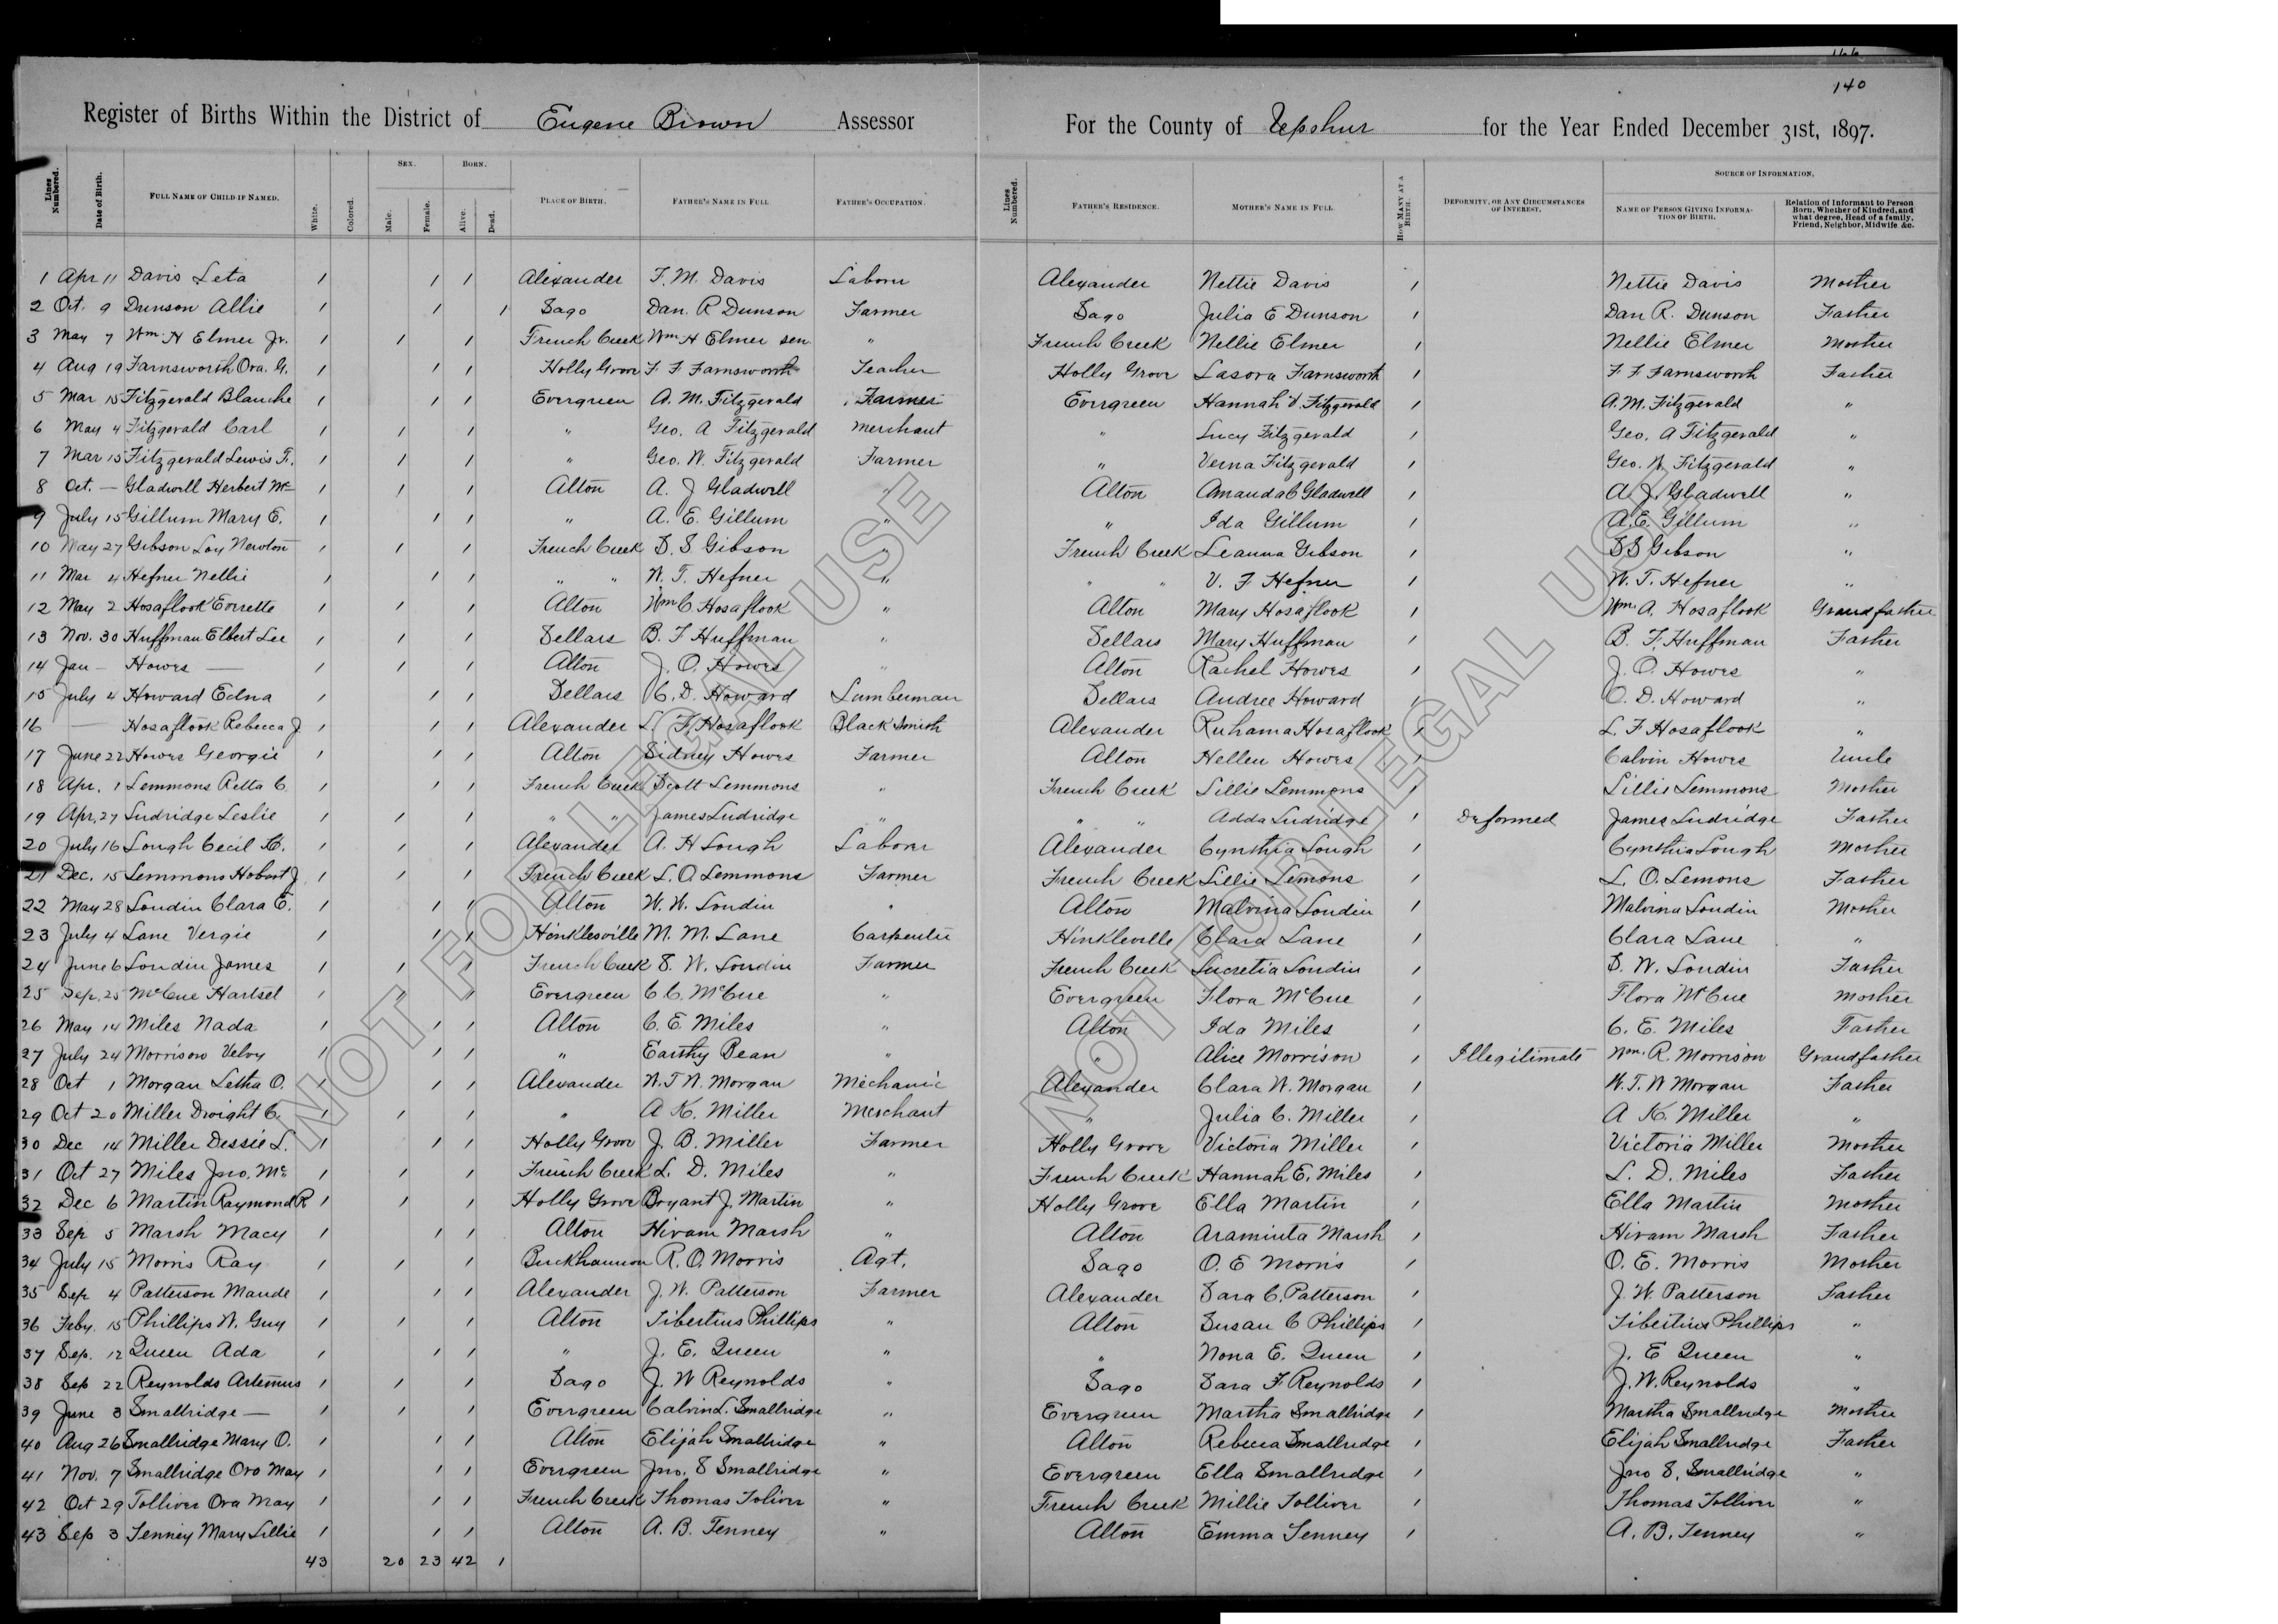 166
140
Register of Births Within the District of Eugene Brown Assessor For the County of Upshur for the Year Ended December 31st, 1897.
Lines Numbered. Date of Birth. Full Name of Child if Named. White. Colored. Sex. Male. Female. Born. Alive. Dead. Place of Birth. Father's Name in Full Father's Occupation. Lines Numbered. Father's Residence. Mother's Name in Full How Many at a Birth. Deformity, or Any Circumstances of Interest. Source of Information. Name of Person Giving Information of Birth. Relation of Informant to Person Born, Whether of Kindred, and what degree, Head of a family, Friend, Neighbor, Midwife &c.
1 Apr 11 Davis Leta 1 1 1 Alexander F. M. Davis Laborer Alexander Nettie Davis 1 Nettie Davis Mother
2 Oct. 9 Dunson Allie 1 1 1 Sago Dan. R Dunson Farmer Sago Julia E Dunson 1 Dan R. Dunson Father
3 May 7 Wm. H Elmer Jr. 1 1 1 French Creek Wm H Elmer sen. " French Creek Nellie Elmer 1 Nellie Elmer Mother
4 Aug 19 Farnsworth Ora. G. 1 1 1 Holly Grove F F Farnsworth Teacher Holly Grove Lasora Farnsworth 1 F F Farnsworth Father
5 Mar 15 Fitzgerald Blanche 1 1 1 Evergreen A. M. Fitzgerald Farmer Evergreen Hannah V. Fitzgerald 1 A. M. Fitzgerald "
6 May 4 Fitzgerald Carl 1 1 1 " Geo. A Fitzgerald Merchant " Lucy Fitzgerald 1 Geo. A Fitzgerald "
7 Mar 15 Fitzgerald Lewis F. 1 1 1 " Geo. W. Fitzgerald Farmer " Verna Fitzgerald 1 Geo. W Fitzgerald "
8 Oct. — Gladwell Herbert Mc 1 1 1 Alton A. J Gladwell " Alton Amanda C Gladwell 1 A. J. Gladwell "
9 July 15 Gillum Mary E. 1 1 1 " A. E. Gillum " " Ida Gillum 1 A. E. Gillum "
10 May 27 Gibson Loy Newton 1 1 1 French Creek S. S Gibson " French Creek Leanna Gibson 1 S S Gibson "
11 Mar 4 Hefner Nellie 1 1 1 " " W. T. Hefner " " " V. F Hefner 1 W. T. Hefner "
12 May 2 Hosaflook Everette 1 1 1 Alton Wm C. Hosaflook " Alton Mary Hosaflook 1 Wm. A. Hosaflook Grandfather
13 Nov. 30 Huffman Elbert Lee 1 1 1 Sellars B. F Huffman " Sellars Mary Huffman 1 B. F. Huffman Father
14 Jan — Howes — 1 1 1 Alton J. O. Howes " Alton Rachel Howes 1 J. O. Howes "
15 July 4 Howard Edna 1 1 1 Sellars C. D. Howard Lumberman Sellars Audree Howard 1 C. D. Howard "
16 — Hosaflook Rebecca J 1 1 1 Alexander L. F. Hosaflook Black Smith Alexander Ruhama Hosaflook 1 L. F Hosaflook "
17 June 22 Howes Georgie 1 1 1 Alton Sidney Howes Farmer Alton Hellen Howes 1 Calvin Howes Uncle
18 Apr. 1 Lemmons Retta C 1 1 1 French Creek Scott Lemmons " French Creek Lillie Lemmons 1 Lillie Lemmons Mother
19 Apr. 27 Ludridge Leslie 1 1 1 " " James Ludridge " " " Adda Ludridge 1 Deformed James Ludridge Father
20 July 16 Lough Cecil H. 1 1 1 Alexander A. H Lough Laborer Alexander Cynthia Lough 1 Cynthia Lough Mother
21 Dec. 15 Lemmons Hobert J 1 1 1 French Creek L. O. Lemmons Farmer French Creek Lillie Lemons 1 L. O. Lemons Father
22 May 28 Loudin Clara E. 1 1 1 Alton W. W. Loudin " Alton Malvina Loudin 1 Malvina Loudin Mother
23 July 4 Lane Vergie 1 1 1 Hinklesville M. M. Lane Carpenter Hinkleville Clara Lane 1 Clara Lane "
24 June 6 Loudin James 1 1 1 French Creek S. W. Loudin Farmer French Creek Lucretia Loudin 1 S. W. Loudin Father
25 Sep. 25 McCue Hartsel 1 1 1 Evergreen C. C. McCue " Evergreen Flora McCue 1 Flora McCue Mother
26 May 14 Miles Nada 1 1 1 Alton C. E. Miles " Alton Ida Miles 1 C. E. Miles Father
27 July 24 Morrison Velvy 1 1 1 " Earthy Bean " " Alice Morrison 1 Illegitimate Wm. R. Morrison Grandfather
28 Oct 1 Morgan Letha O. 1 1 1 Alexander W. T W. Morgan Mechanic Alexander Clara W. Morgan 1 W. T. W Morgan Father
29 Oct 20 Miller Dwight C. 1 1 1 " A K. Miller Merchant " Julia C. Miller 1 A K. Miller "
30 Dec 14 Miller Dessie L. 1 1 1 Holly Grove J. B. Miller Farmer Holly Grove Victoria Miller 1 Victoria Miller Mother
31 Oct 27 Miles Jno. Mc 1 1 1 French Creek L. D. Miles " French Creek Hannah E. Miles 1 L. D. Miles Father
32 Dec 6 Martin Raymond R 1 1 1 Holly Grove Bryant J. Martin " Holly Grove Ella Martin 1 Ella Martin Mother
33 Sep 5 Marsh Macy 1 1 1 Alton Hiram Marsh " Alton Araminta Marsh 1 Hiram Marsh Father
34 July 15 Morris Ray 1 1 1 Buckhannon R. O. Morris Agt. Sago O. E Morris 1 O. E. Morris Mother
35 Sep 4 Patterson Maude 1 1 1 Alexander J. W. Patterson Farmer Alexander Sara C. Patterson 1 J. W. Patterson Father
36 Feby. 15 Phillips W. Guy 1 1 1 Alton Libertius Phillips " Alton Susan C Phillips 1 Libertius Phillips "
37 Sep. 12 Queen Ada 1 1 1 " J. E. Queen " " Nona E. Queen 1 J. E Queen "
38 Sep 22 Reynolds Artemus 1 1 1 Sago J. W Reynolds " Sago Sara F Reynolds 1 J. W. Reynolds "
39 June 3 Smallridge — 1 1 1 Evergreen Calvin L. Smallridge " Evergreen Martha Smallridge 1 Martha Smallridge Mother
40 Aug 26 Smallridge Mary O. 1 1 1 Alton Elijah Smallridge " Alton Rebecca Smallridge 1 Elijah Smallridge Father
41 Nov. 7 Smallridge Oro May 1 1 1 Evergreen Jno. S Smallridge " Evergreen Ella Smallridge 1 Jno S. Smallridge "
42 Oct 29 Tolliver Ora May 1 1 1 French Creek Thomas Toliver " French Creek Millie Tolliver 1 Thomas Tolliver "
43 Sep 3 Tenney Mary Lillie 1 1 1 Alton A. B. Tenney " Alton Emma Tenney 1 A. B. Tenney "
43 20 23 42 1
NOT FOR LEGAL USE
NOT FOR LEGAL USE